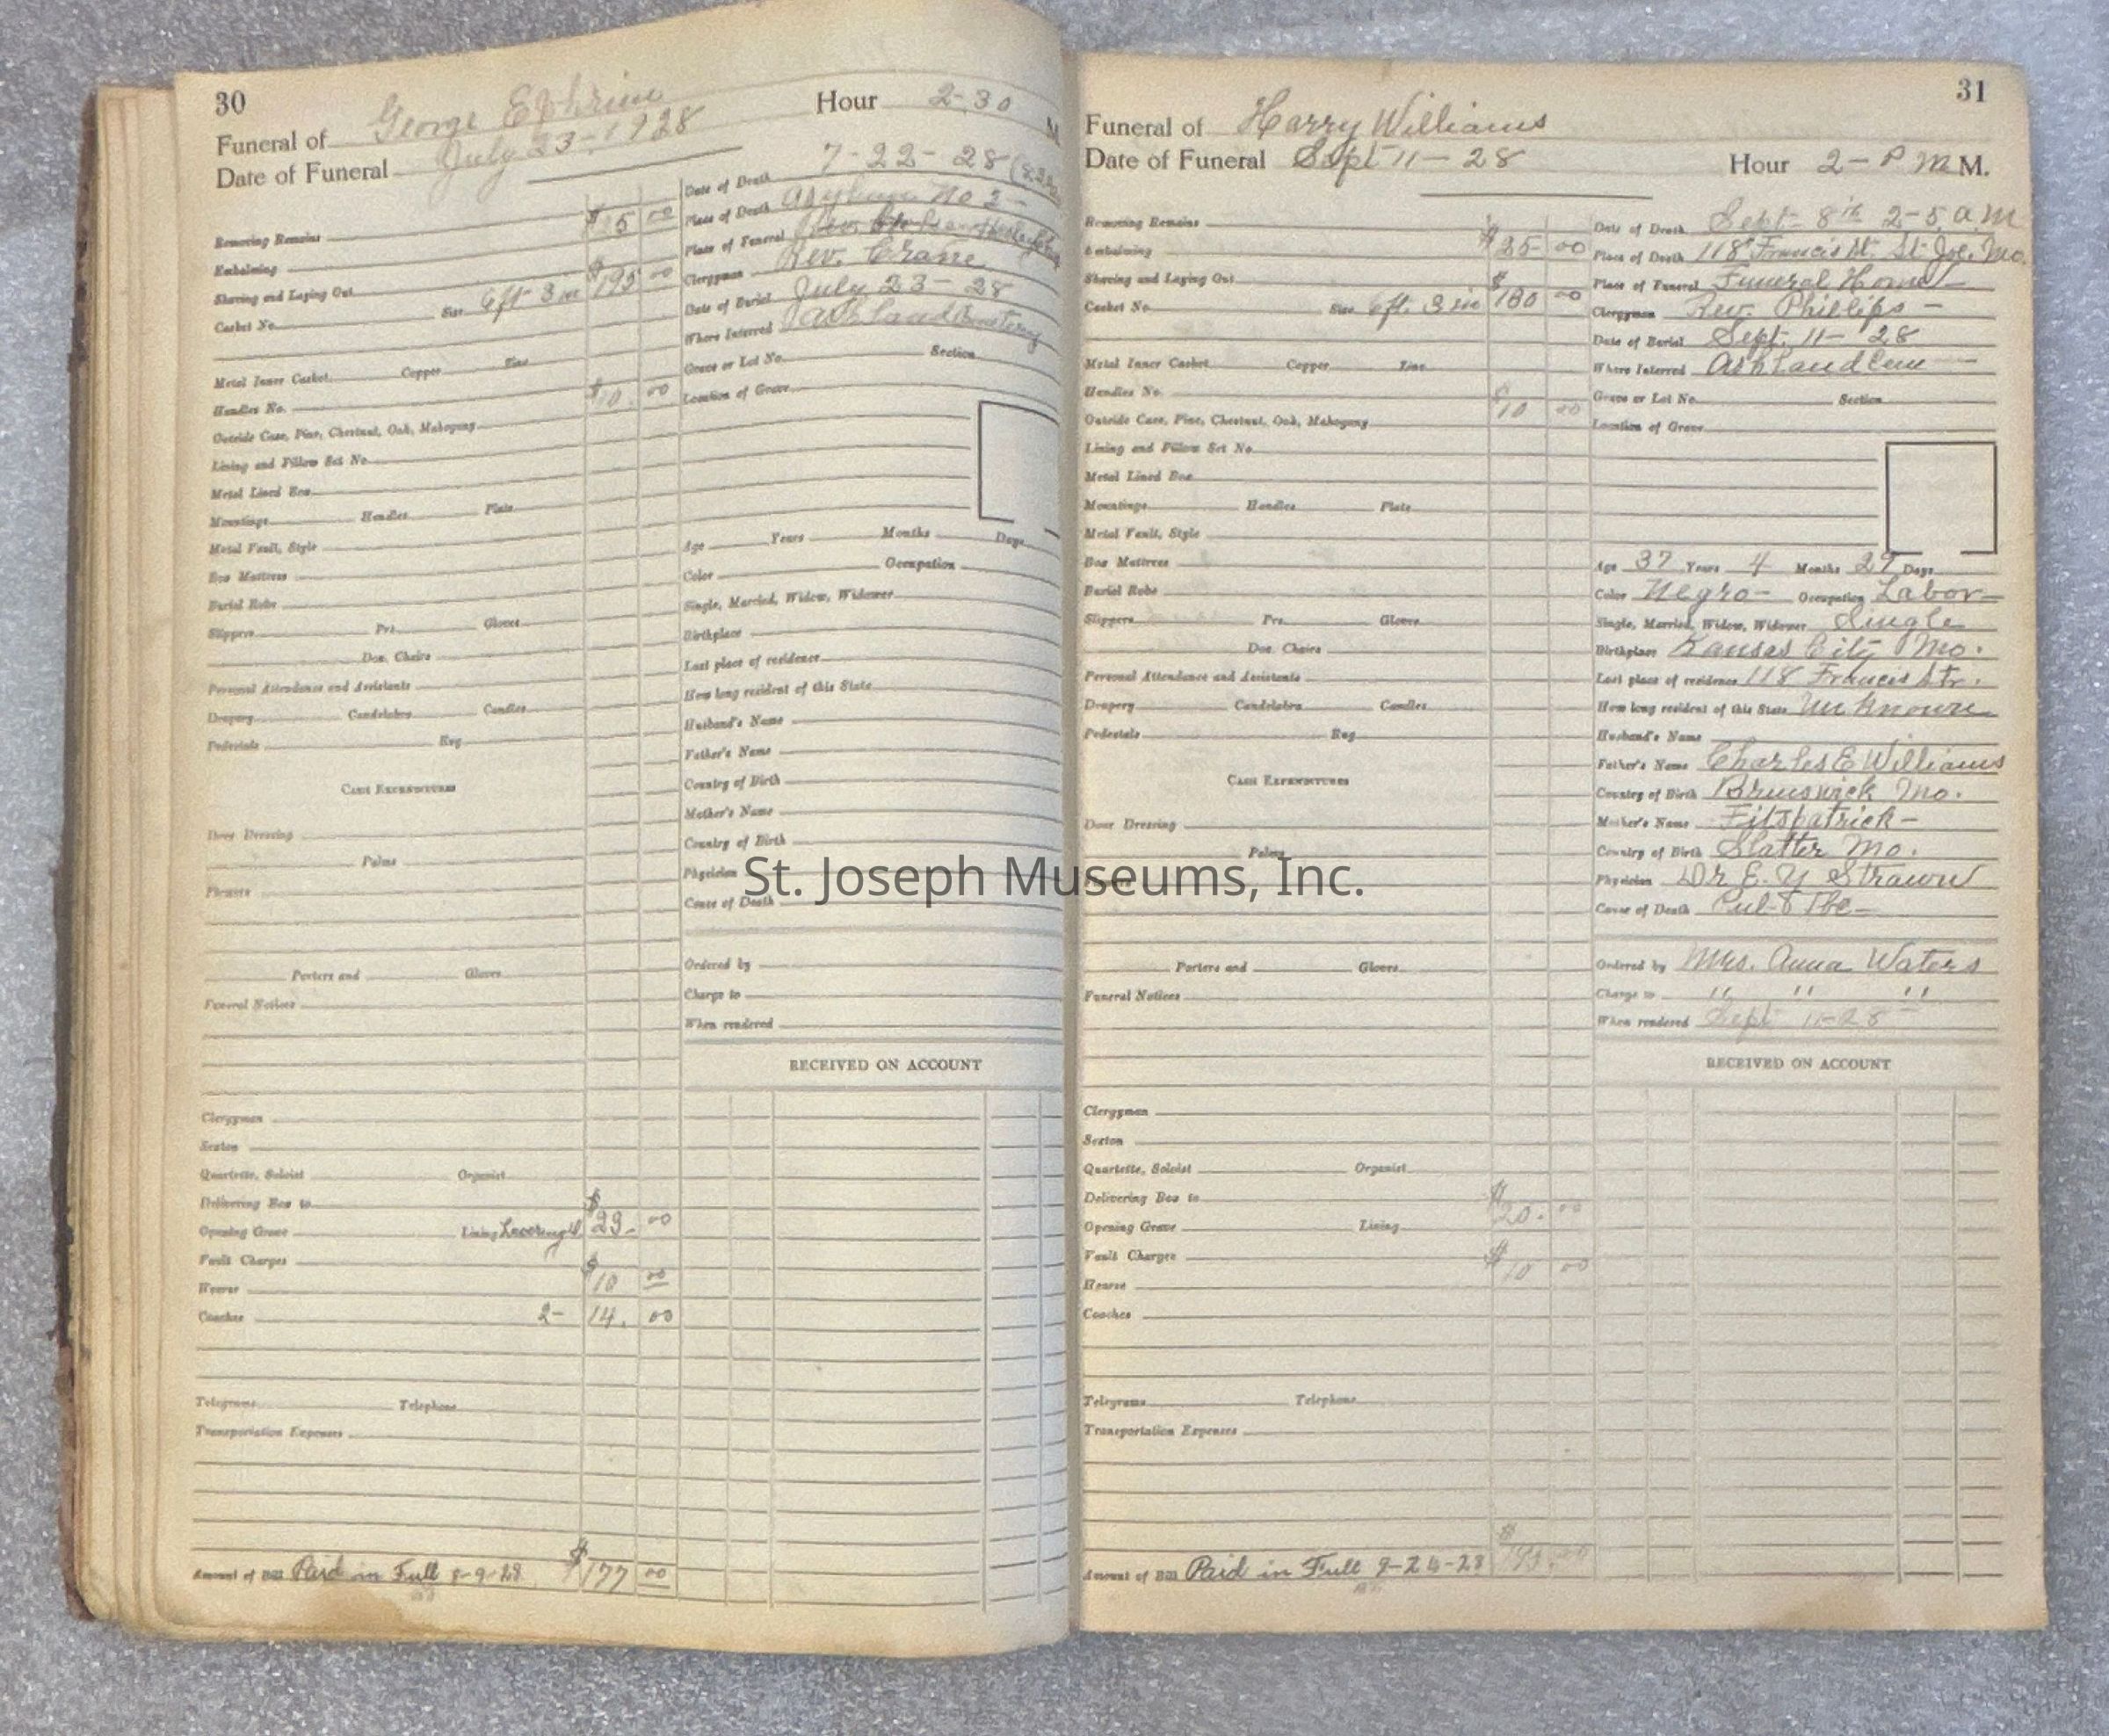 30
Funeral of George Ephrim Hour 2-30 M
Date of Funeral July 23-1928
Date of Death 7-22-28
Place of Death Asylum No 2-
Place of Funeral
Clergyman Rev. Crane
Date of Burial July 23-28
Where Interred Ashland Cemetery
Grave or Lot No. Section
Location of Grave
Removing Remains
Embalming
Shaving and Laying Out
Casket No. Size 6ft 3in $195 00
Metal Inner Casket Copper Zinc
Handles No.
$10. 00
Outside Case, Pine, Chestnut, Oak, Mahogany
Lining and Pillow Set No.
Metal Lined Box
Mountings Handles Plate
Metal Vault, Style
Box Mattress
Burial Robe
Slippers Prs. Gloves
Doz. Chairs
Personal Attendance and Assistants
Drapery Candelabra Candles
Pedestals Rug
Cash Expenditures
Door Dressing
Palms
Flowers
Porters and Gloves
Funeral Notices
Clergyman
Sexton
Quartette, Soloist Organist
Delivering Box to
Opening Grave Lining $23- 00
Vault Charges
Hearse $10 00
Coaches 2- 14. 00
Telegrams Telephone
Transportation Expenses
Amount of Bill Paid in Full 8-9-28 $177 00
Age Years Months Days
Color Occupation
Single, Married, Widow, Widower
Birthplace
Last place of residence
How long resident of this State
Husband's Name
Father's Name
Country of Birth
Mother's Name
Country of Birth
Physician
Cause of Death
Ordered by
Charge to
When rendered
RECEIVED ON ACCOUNT
31
Funeral of Harry Williams
Date of Funeral Sept 11-28 Hour 2-P m M.
Removing Remains
Embalming $25- 00
Shaving and Laying Out
Casket No. Size 6ft. 3in $130 00
Metal Inner Casket Copper Zinc
Handles No.
$10 00
Outside Case, Pine, Chestnut, Oak, Mahogany
Lining and Pillow Set No.
Metal Lined Box
Mountings Handles Plate
Metal Vault, Style
Box Mattress
Burial Robe
Slippers Prs. Gloves
Doz. Chairs
Personal Attendance and Assistants
Drapery Candelabra Candles
Pedestals Rug
Cash Expenditures
Door Dressing
Palms
Porters and Gloves
Funeral Notices
Clergyman
Sexton
Quartette, Soloist Organist
Delivering Box to
$20. 00
Opening Grave Lining
Vault Charges
$10 00
Hearse
Coaches
Telegrams Telephone
Transportation Expenses
Amount of Bill Paid in Full 9-24-28
Date of Death Sept- 8th 2-5 a.m
Place of Death 118 Francis St. St. Joe. Mo.
Place of Funeral Funeral Home
Clergyman Rev. Phillips -
Date of Burial Sept. 11-28
Where Interred Ashland Cem
Grave or Lot No. Section
Location of Grave
Age 37 Years 4 Months 27 Days
Color Negro- Occupation Labor-
Single, Married, Widow, Widower Single
Birthplace Kansas City Mo.
Last place of residence 118 Francis Str.
How long resident of this State Unknown
Husband's Name
Father's Name Charles E Williams
Country of Birth Brunswick Mo.
Mother's Name Fitspatrick-
Country of Birth Slatter Mo.
Physician Dr E. Y Strawn
Cause of Death
Ordered by Mrs. Anna Waters
Charge to " " "
When rendered Sept 11-28
RECEIVED ON ACCOUNT
St. Joseph Museums, Inc.